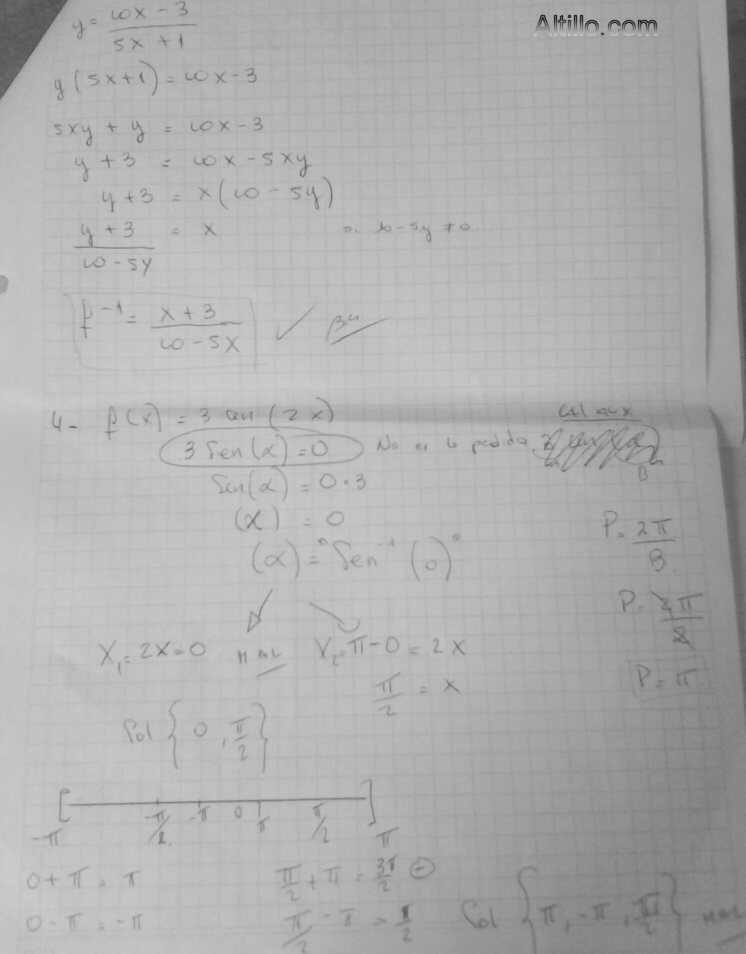 Altillo.com
y = 10x - 3 / 5x + 1
y (5x + 1) = 10x - 3
5xy + y = 10x - 3
y + 3 = 10x - 5xy
y + 3 = x (10 - 5y)
y + 3 / 10 - 5y = x 10 - 5y ≠ 0
f⁻¹ = x + 3 / 10 - 5x ✓
4- f(x) = 3 sen (2x)
3 Sen(α) = 0 No es lo pedido
Sen(α) = 0·3
(x) = 0
(α) = Sen⁻¹ (0)
P = 2π / B
P = 2π / 2
P = π
X₁ = 2x = 0 MAL X₂ = π - 0 = 2x
π/2 = x
Sol { 0, π/2 }
-π -π/2 -π 0 π π/2 π
0 + π = π π/2 + π = 3π/2
0 - π = -π π/2 - π = π/2 Sol { π, -π, π/2 } MAL